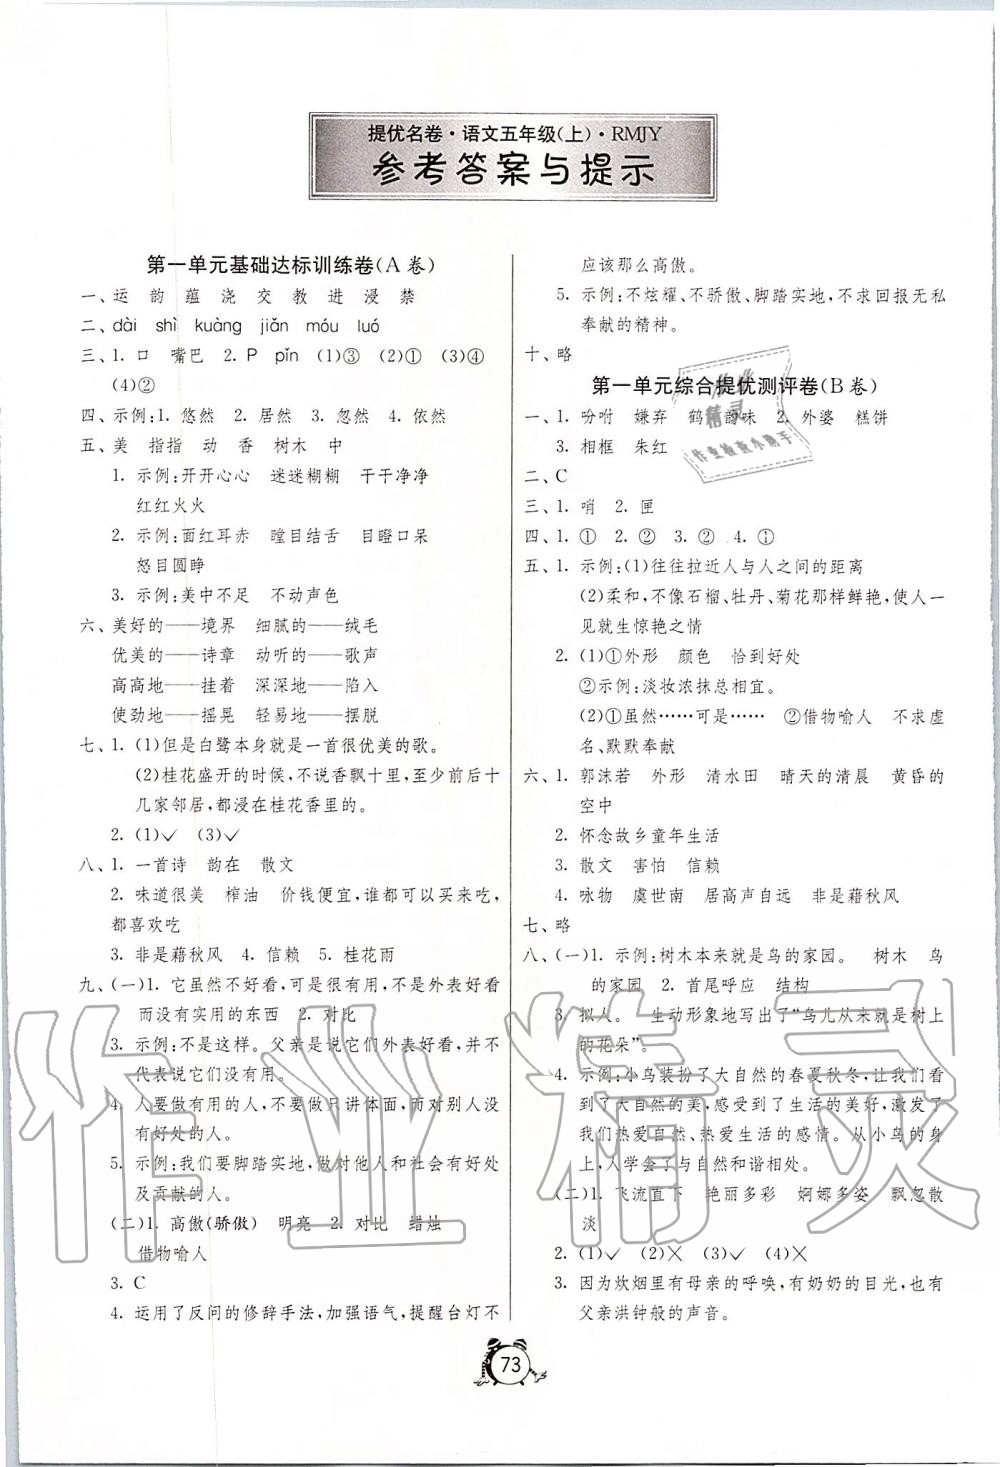 提优名卷·语文五年级(上)·RMJY
参考答案与提示
第一单元基础达标训练卷(A卷)
一、运 韵 蕴 浇 交 教 进 浸 禁
二、dài shì kuàng jiǎn móu luó
三、1. 口 嘴巴 2. P pǐn (1)③ (2)① (3)④
(4)②
四、示例:1. 悠然 2. 居然 3. 忽然 4. 依然
五、美 指指 动 香 树木 中
1. 示例:开开心心 迷迷糊糊 干干净净
红红火火
2. 示例:面红耳赤 瞠目结舌 目瞪口呆
怒目圆睁
3. 示例:美中不足 不动声色
六、美好的——境界 细腻的——绒毛
优美的——诗章 动听的——歌声
高高地——挂着 深深地——陷入
使劲地——摇晃 轻易地——摆脱
七、1. (1)但是白鹭本身就是一首很优美的歌。
(2)桂花盛开的时候,不说香飘十里,至少前后十
几家邻居,都浸在桂花香里的。
2. (1)✓ (3)✓
八、1. 一首诗 韵在 散文
2. 味道很美 榨油 价钱便宜,谁都可以买来吃,
都喜欢吃
3. 非是藉秋风 4. 信赖 5. 桂花雨
九、(一)1. 它虽然不好看,可是很有用,不是外表好看
而没有实用的东西 2. 对比
3. 示例:不是这样。父亲是说它们外表好看,并不
代表说它们没有用。
4. 人要做有用的人,不要做只讲体面,而对别人没
有好处的人。
5. 示例:我们要脚踏实地,做对他人和社会有好处
及贡献的人。
(二)1. 高傲(骄傲) 明亮 2. 对比 蜡烛
借物喻人
3. C
4. 运用了反问的修辞手法,加强语气,提醒台灯不
应该那么高傲。
5. 示例:不炫耀、不骄傲、脚踏实地,不求回报无私
奉献的精神。
十、略
第一单元综合提优测评卷(B卷)
一、1. 吩咐 嫌弃 鹤 韵味 2. 外婆 糕饼
3. 相框 朱红
二、C
三、1. 哨 2. 匣
四、1. ① 2. ② 3. ② 4. ①
五、1. 示例:(1)往往拉近人与人之间的距离
(2)柔和,不像石榴、牡丹、菊花那样鲜艳,使人一
见就生惊艳之情
2. (1)①外形 颜色 恰到好处
②示例:淡妆浓抹总相宜。
(2)①虽然……可是…… ②借物喻人 不求虚
名、默默奉献
六、1. 郭沫若 外形 清水田 晴天的清晨 黄昏的
空中
2. 怀念故乡童年生活
3. 散文 害怕 信赖
4. 咏物 虞世南 居高声自远 非是藉秋风
七、略
八、(一)1. 示例:树木本来就是鸟的家园。 树木 鸟
的家园 2. 首尾呼应 结构
3. 拟人。 生动形象地写出了“鸟儿从来就是树上
的花朵”。
4. 示例:小鸟装扮了大自然的春夏秋冬,让我们看
到了大自然的美,感受到了生活的美好,激发了
我们热爱自然、热爱生活的感情。从小鸟的身
上,人学会了与自然和谐相处。
(二)1. 飞流直下 艳丽多彩 婀娜多姿 飘忽散
淡
2. (1)✓ (2)✕ (3)✓ (4)✕
3. 因为炊烟里有母亲的呼唤,有奶奶的目光,也有
父亲洪钟般的声音。
73
作业精灵
作业精灵
作业检查小助手